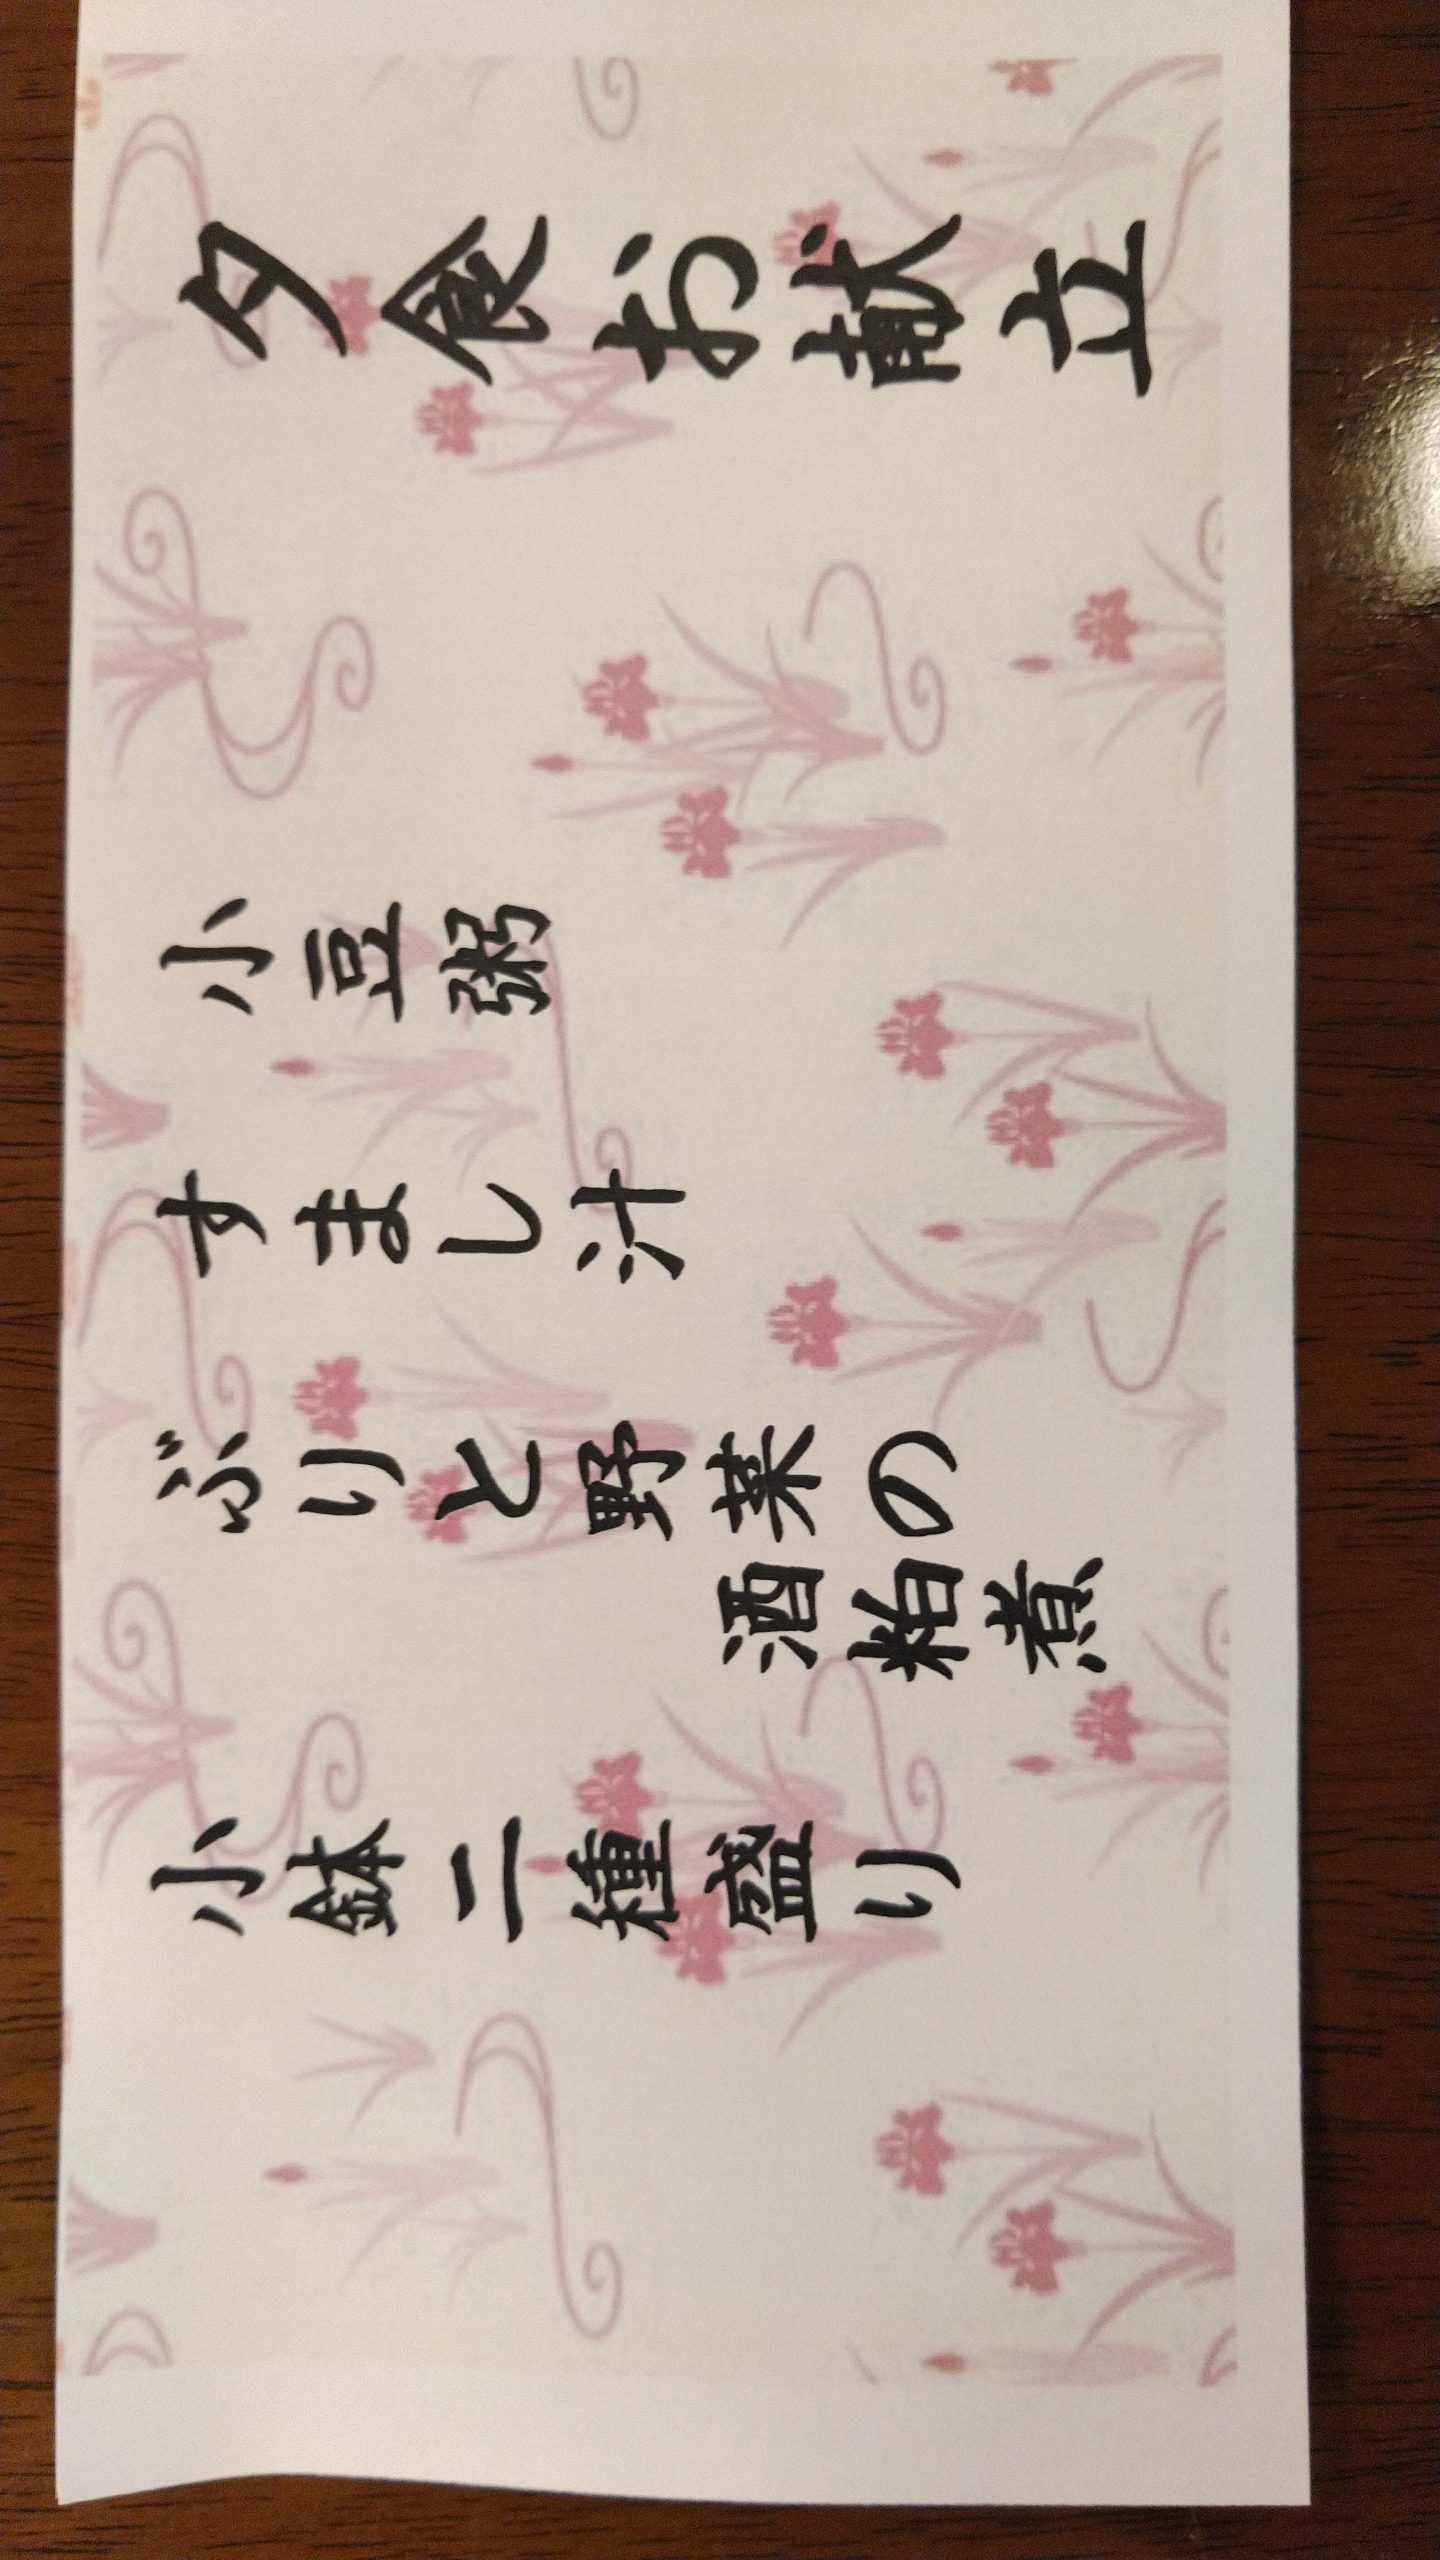 夕食お献立
小豆粥
すまし汁
ぶりと野菜の
酒粕煮
小鉢二種盛り